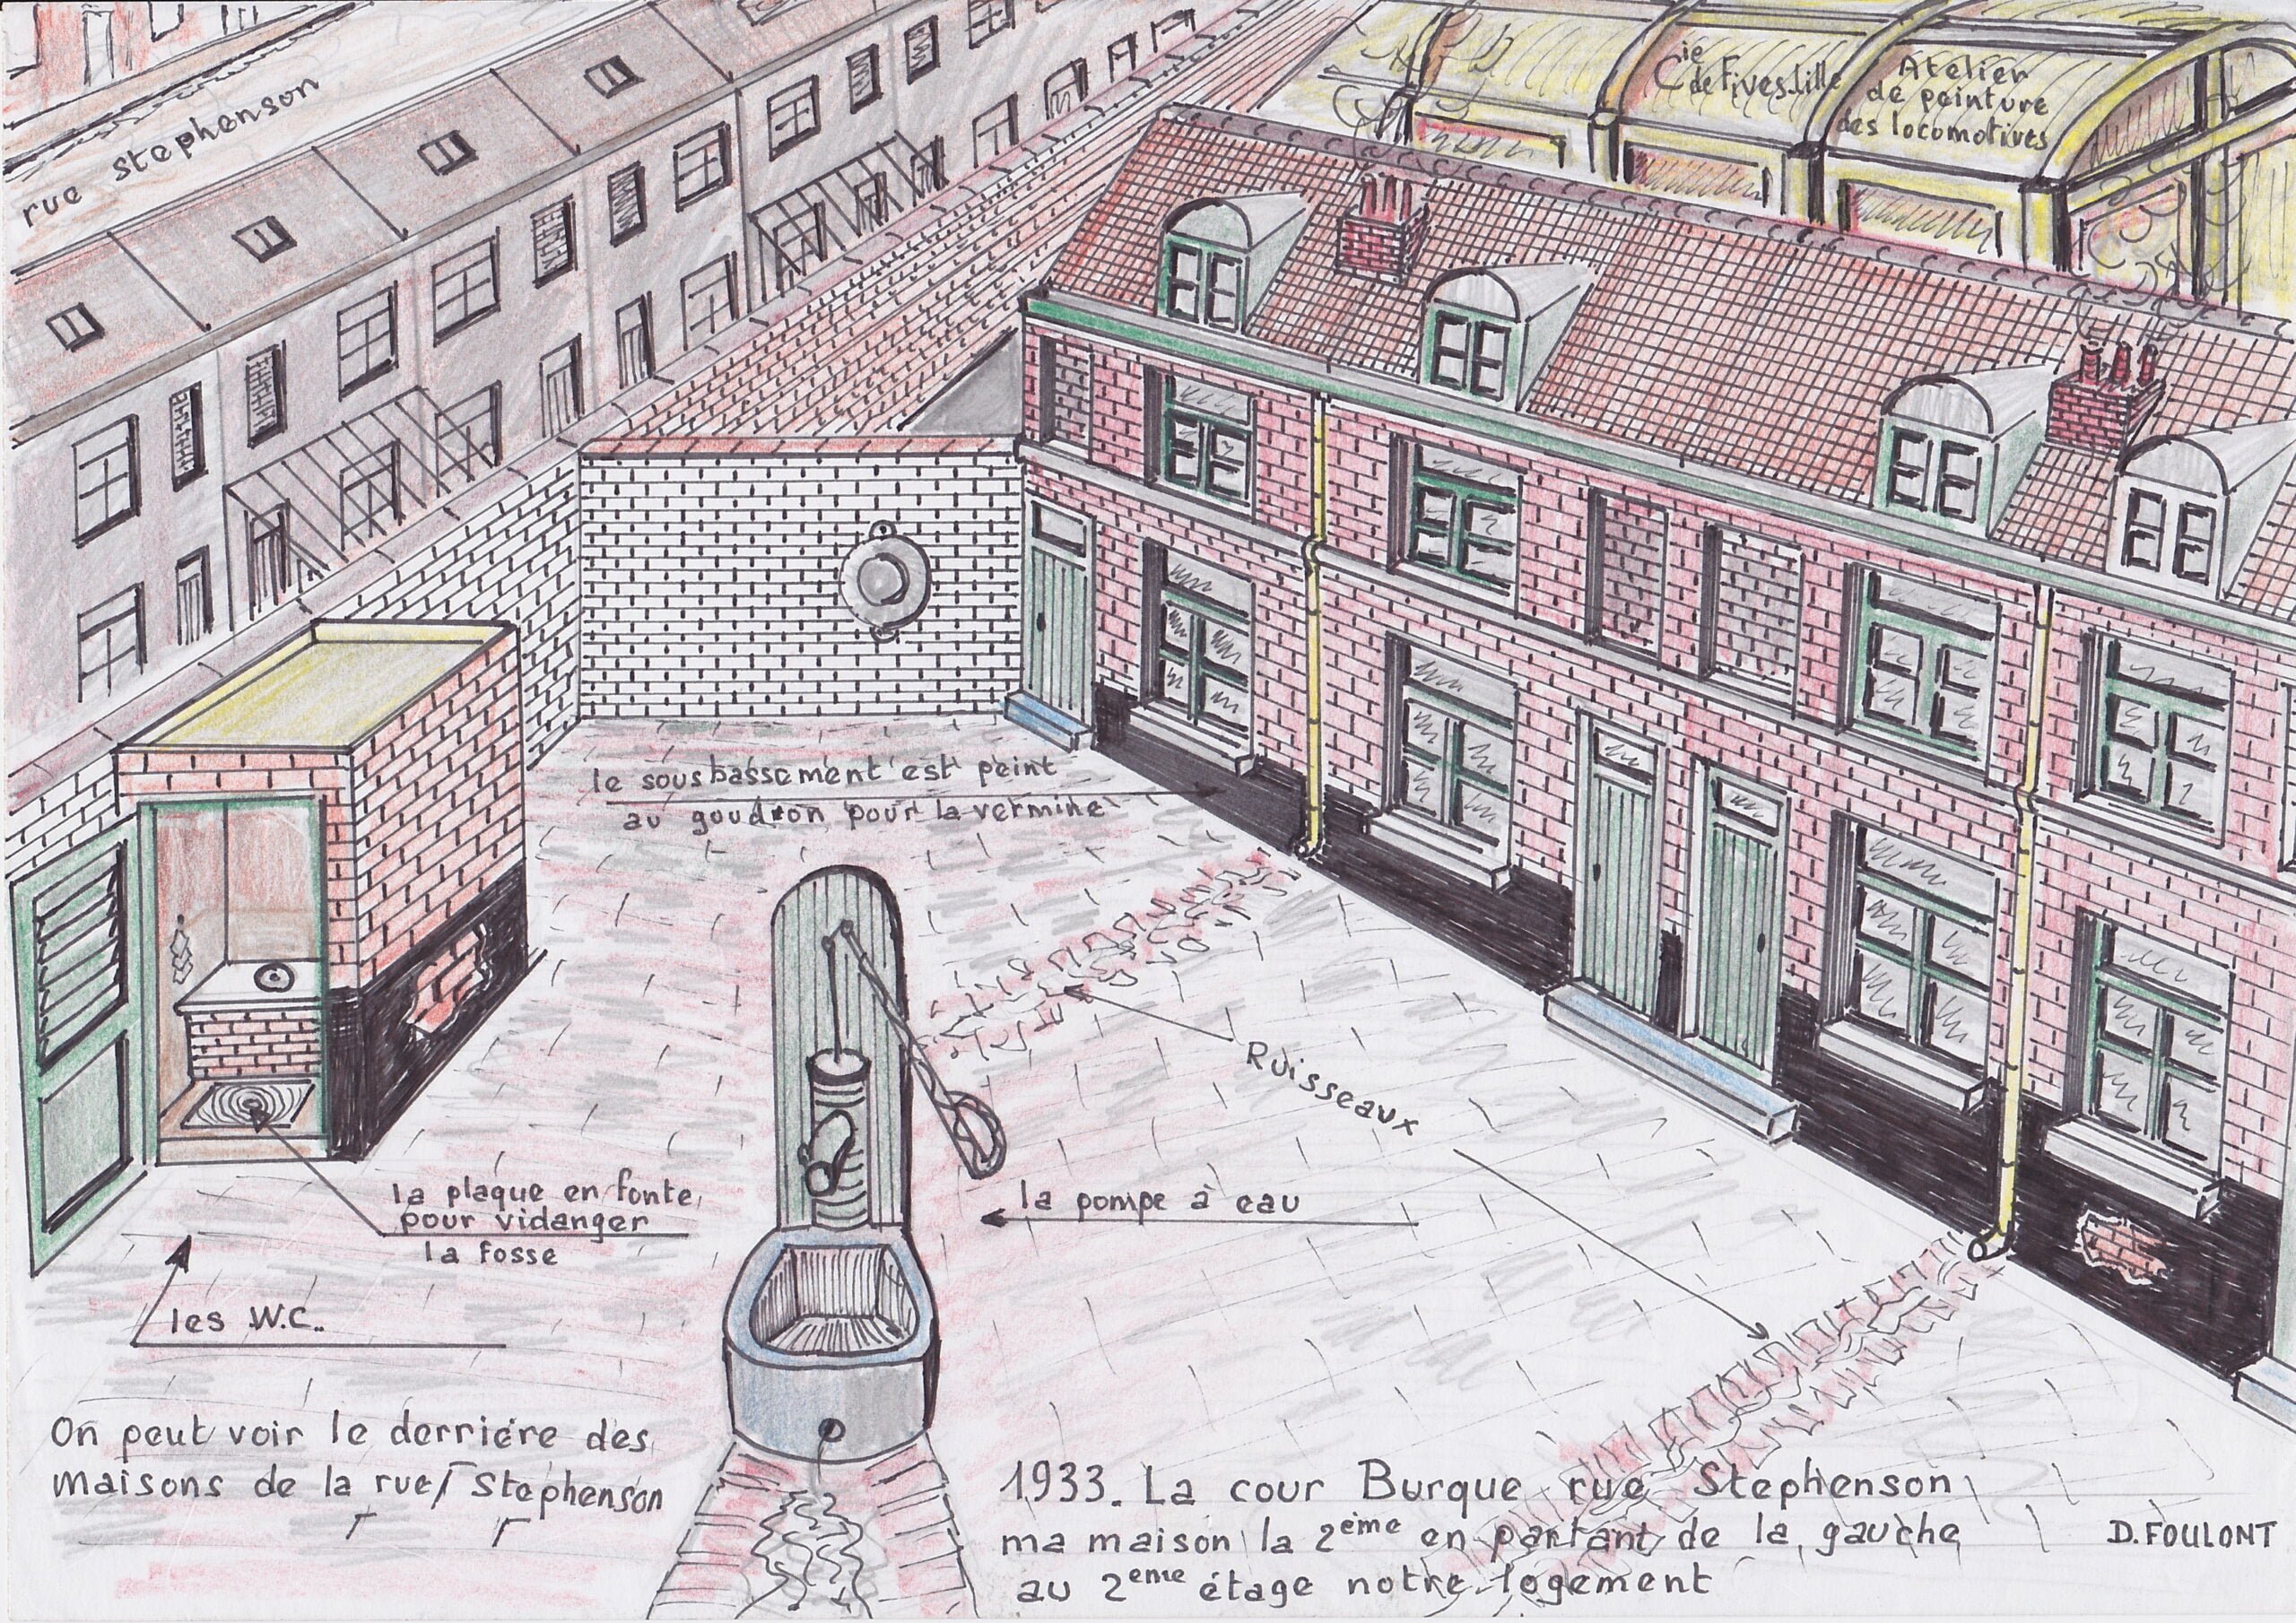 rue stephenson
Cie
de Fives-Lille
Atelier
de peinture
des locomotives
le sousbassement est peint
au goudron pour la vermine
Ruisseaux
la plaque en fonte
pour vidanger
la fosse
la pompe à eau
les W.C.
On peut voir le derriére des
maisons de la rue Stephenson
1933. La cour Burque rue Stephenson
ma maison la 2ème en partant de la gauche
au 2eme étage notre logement
D. FOULONT